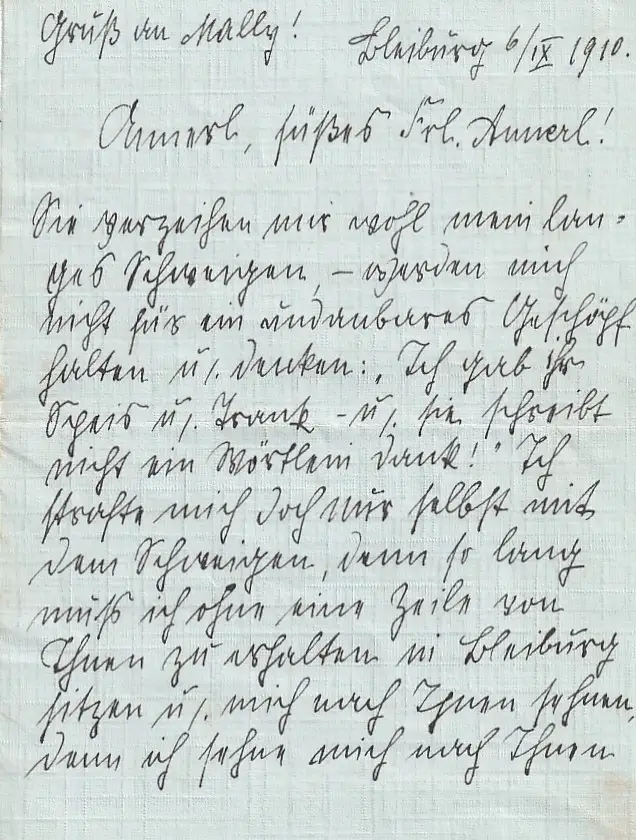 Gruß an Mally!
Bleiburg 6/IX 1910.
Annerl, süßes Frl. Annerl!
Sie verzeihen mir wohl mein lan-
ges Schweigen, – werden mich
nicht für ein undankbares Geschöpf
halten u. denken: „Ich gab ihr
Speis u. Trank – u. sie schreibt
nicht ein Wörtlein Dank!" Ich
strafte mich doch nur selbst mit
dem Schweigen, denn so lang
muß ich ohne eine Zeile von
Ihnen zu erhalten in Bleiburg
sitzen u. mich nach Ihnen sehnen,
denn ich sehne mich nach Ihnen